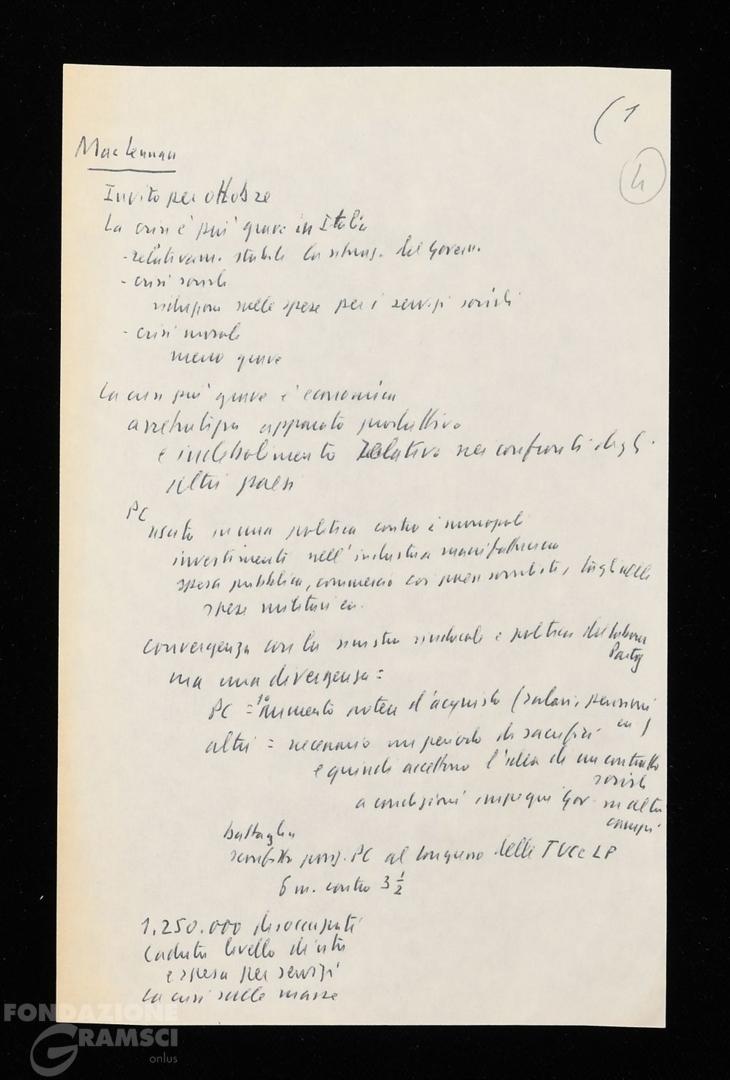 (1
4
Mac Lennan
Invito per ottobre
La crisi è più grave in Italia
- relativam. stabile la situaz. del Govern.
- crisi sociale
riduzioni nelle spese per i servizi sociali
- crisi morale
meno grave
La crisi più grave è economica
arretratezza apparato produttivo
e indebolimento relativo nei confronti degli
altri paesi
PC
uscita in una politica contro i monopoli
investimenti nell'industria manifatturiera
spesa pubblica, commercio coi paesi socialisti, tagli alle
spese militari ecc.
convergenza con la sinistra sindacale e politica del Labour
Party
ma una divergenza =
PC = 1° aumento potere d'acquisto (salari, pensioni
altri = necessario un periodo di sacrifici
e quindi accettano l'idea di un contratto
sociale
a condizioni impegni Gov. in altri
campi
Battaglia
sconfitta PC al congresso delle TUC e LP
6 m. contro 3 1/2
1.250.000 disoccupati
Caduta livello di vita
e spesa per servizi
La crisi sulle masse
FONDAZIONE
GRAMSCI
onlus